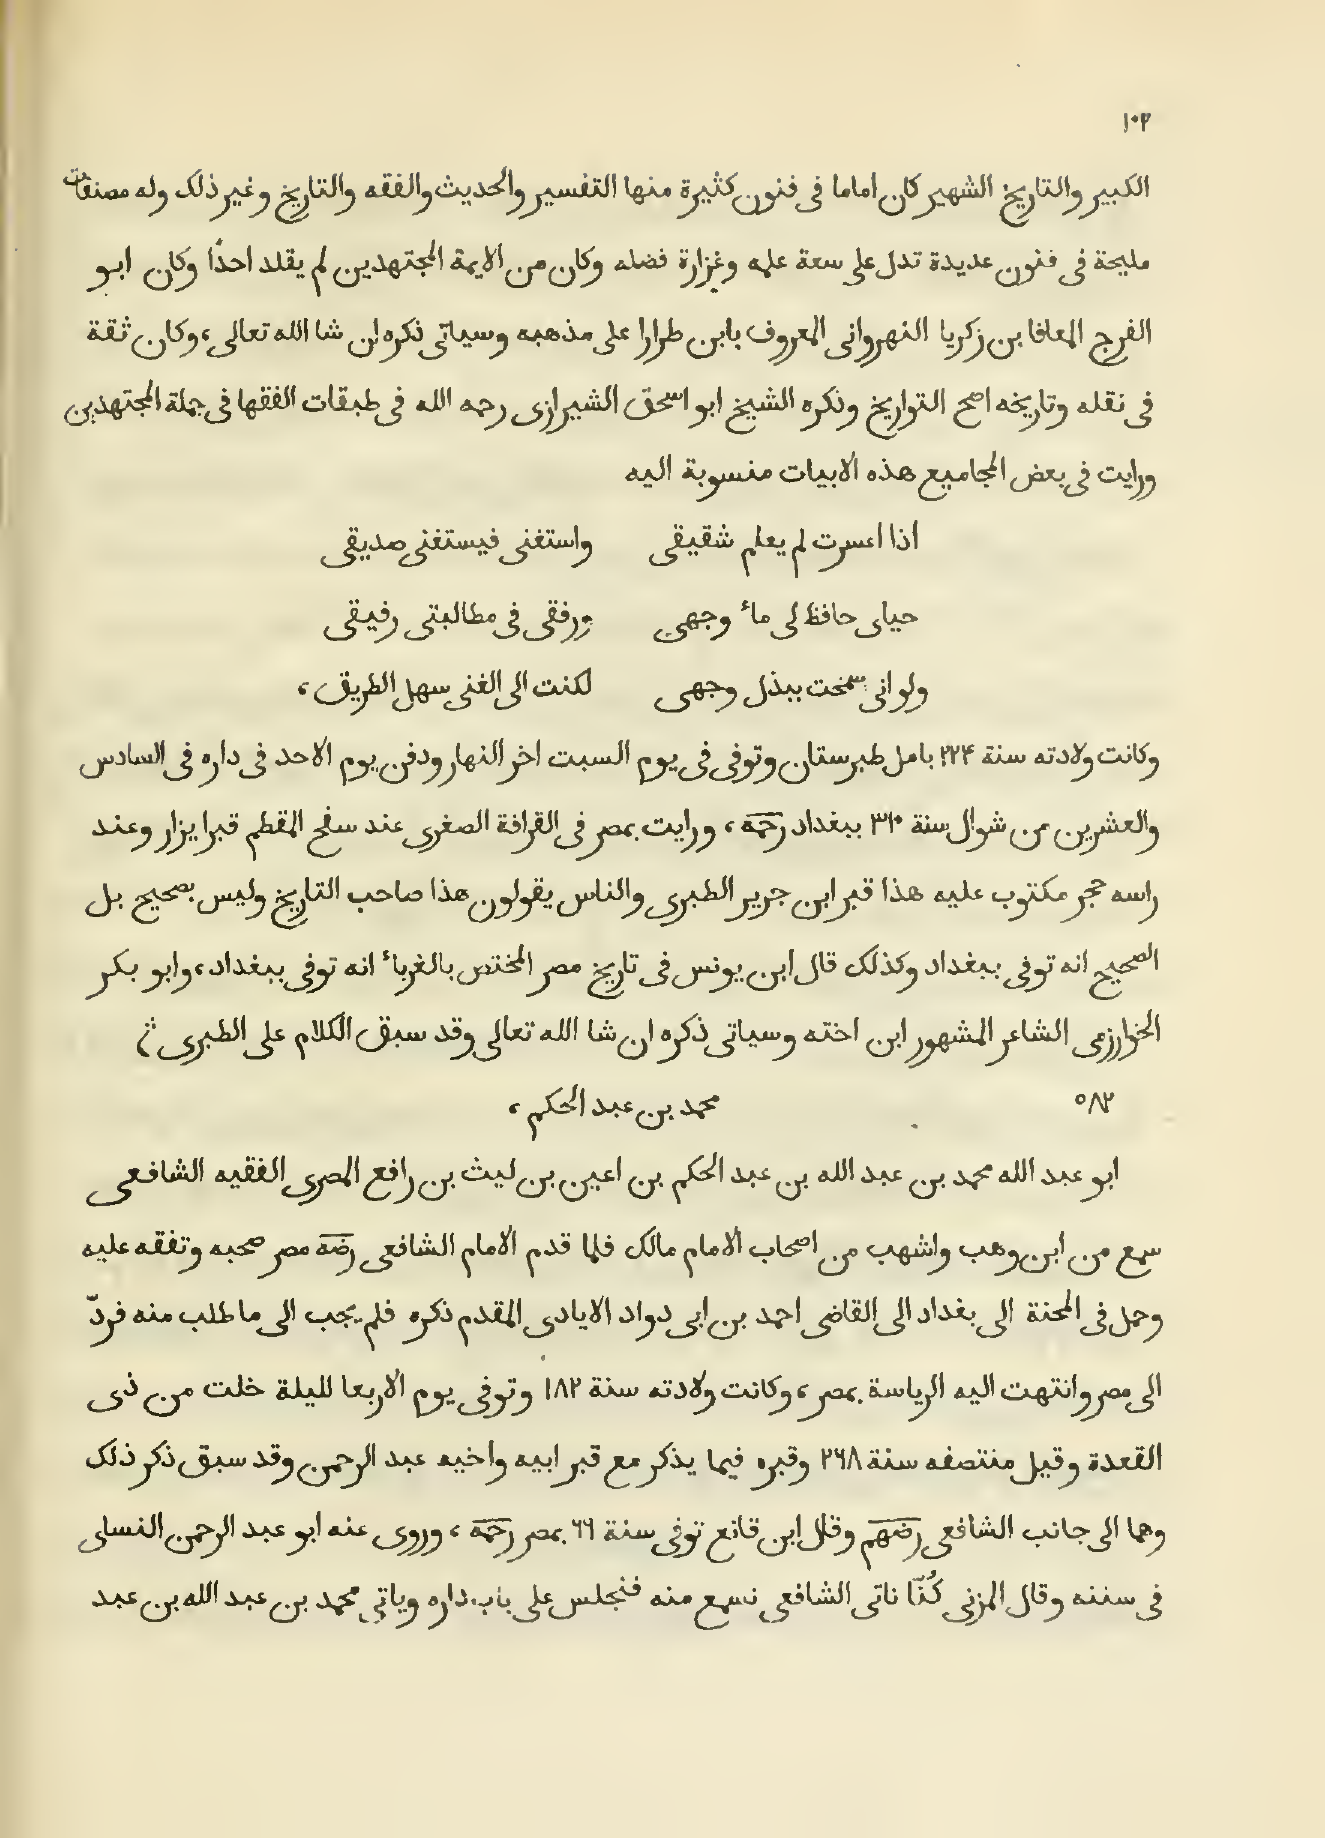 ١٠٢
الكبير والتاريخ الشهير كان اماما فى فنون كثيرة منها التفسير والحديث والفقه والتاريخ وغير ذلك وله مصنفات
مليحة فى فنون عديدة تدل على سعة علمه وغزارة فضله وكان من الايمة المجتهدين لم يقلد احدًا وكان ابو
الفرج المعافا بن زكريا النهروانى المعروف بابن طرارا على مذهبه وسياتى ذكره ان شا الله تعالى، وكان ثقة
فى نقله وتاريخه اصح التواريخ وذكره الشيخ ابو اسحق الشيرازى رحمه الله فى طبقات الفقها فى جملة المجتهدين
ورايت فى بعض المجاميع هذه الابيات منسوبة اليه
اذا اعسرت لم يعلم شقيقى واستغنى فيستغنى صديقى
حياى حافظ لى ماء وجهى ورفقى فى مطالبتى رفيقى
ولو انى سمحت ببذل وجهى لكنت الى الغنى سهل الطريق،
وكانت ولادته سنة ٢٢٤ بامل طبرستان وتوفى فى يوم السبت اخر النهار ودفن يوم الاحد فى داره فى السادس
والعشرين من شوال سنة ٣١٠ ببغداد رحمه، ورايت بمصر فى القرافة الصغرى عند سفح المقطم قبرا يزار وعند
راسه حجر مكتوب عليه هذا قبر ابن جرير الطبرى والناس يقولون هذا صاحب التاريخ وليس بصحيح بل
الصحيح انه توفى ببغداد وكذلك قال ابن يونس فى تاريخ مصر المختص بالغرباء انه توفى ببغداد، وابو بكر
الخوارزمى الشاعر المشهور ابن اخته وسياتى ذكره ان شا الله تعالى وقد سبق الكلام على الطبرى ؞
٥٨٢ محمد بن عبد الحكم،
ابو عبد الله محمد بن عبد الله بن عبد الحكم بن اعين بن ليث بن رافع المصرى الفقيه الشافعى
سمع من ابن وهب واشهب من اصحاب الامام مالك فلما قدم الامام الشافعى رضه مصر صحبه وتفقه عليه
وحمل فى المحنة الى بغداد الى القاضى احمد بن ابى دواد الايادى المقدم ذكره فلم يجب الى ما طلب منه فردّ
الى مصر وانتهت اليه الرياسة بمصر، وكانت ولادته سنة ١٨٢ وتوفى يوم الاربعا لليلة خلت من ذى
القعدة وقيل منتصفه سنة ٢٦٨ وقبره فيما يذكر مع قبر ابيه واخيه عبد الرحمن وقد سبق ذكر ذلك
وهما الى جانب الشافعى رضهم وقال ابن قانع توفى سنة ٦٩ بمصر رحمه، وروى عنه ابو عبد الرحمن النساى
فى سننه وقال المزنى كُنّا ناتى الشافعى نسمع منه فنجلس على باب داره وياتى محمد بن عبد الله بن عبد